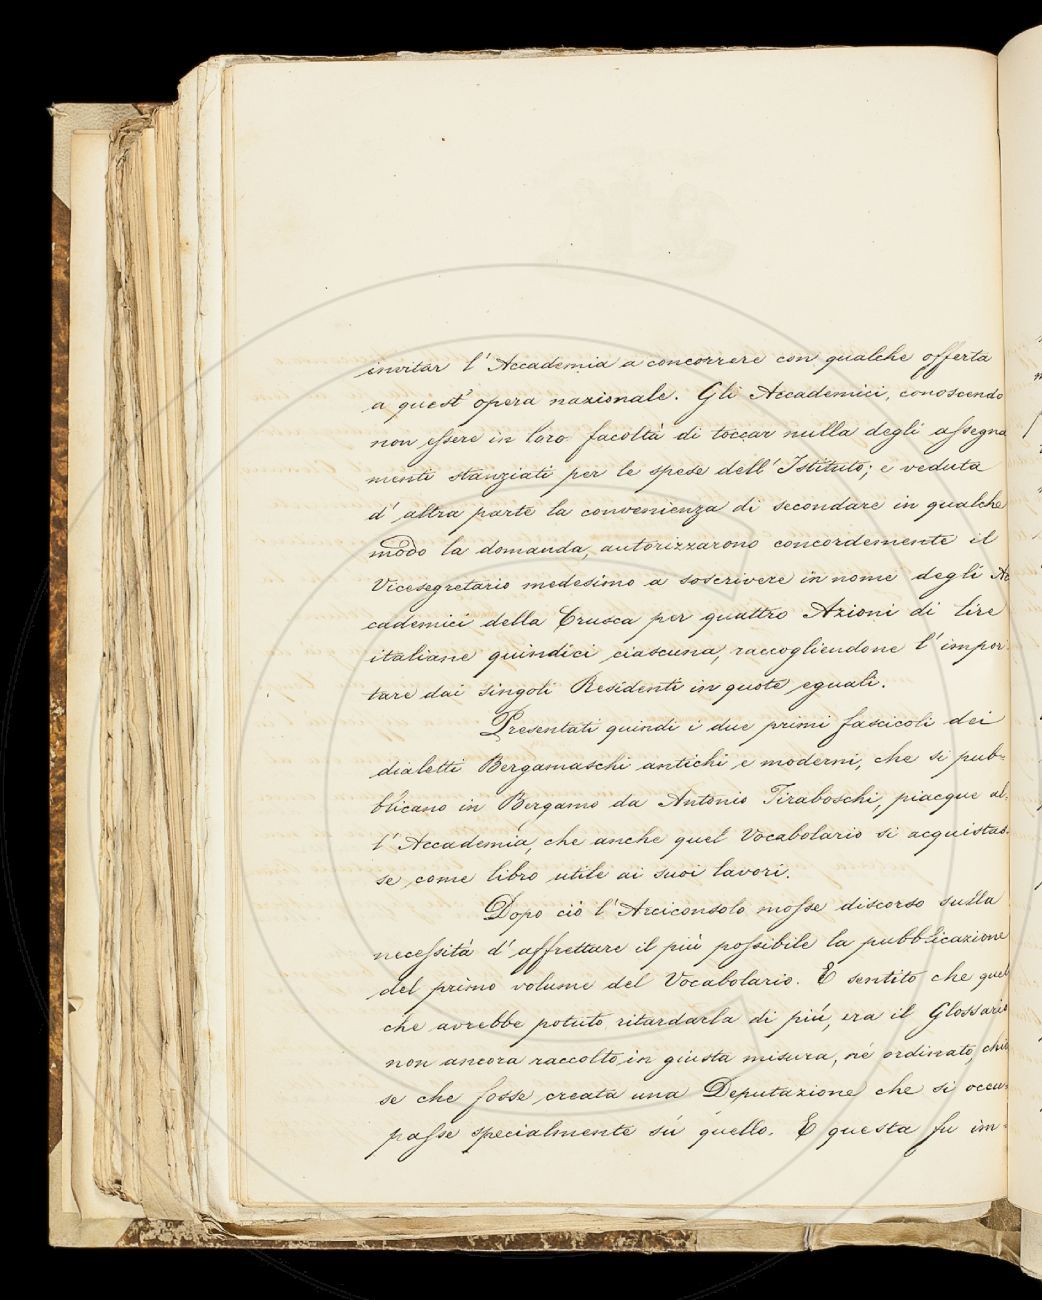 invitar l'Accademia a concorrere con qualche offerta
a quest'opera nazionale. Gli Accademici, conoscendo
non essere in loro facoltà di toccar nulla degli assegna
menti stanziati per le spese dell'Istituto; e veduta
d'altra parte la convenienza di secondare in qualche
modo la domanda, autorizzarono concordemente il
Vicesegretario medesimo a soscrivere in nome degli Ac
cademici della Crusca per quattro Azioni di lire
italiane quindici ciascuna, raccogliendone l'impor
tare dai singoli Residenti in quote eguali.
Presentati quindi i due primi fascicoli dei
dialetti Bergamaschi antichi e moderni, che si pub-
blicano in Bergamo da Antonio Tiraboschi, piacque al-
l'Accademia, che anche quel Vocabolario si acquistas-
se come libro utile ai suoi lavori.
Dopo ciò l'Arciconsolo mosse discorso sulla
necessità d'affrettare il più possibile la pubblicazione
del primo volume del Vocabolario. E sentito che quel
che avrebbe potuto ritardarla di più, era il Glossario
non ancora raccolto in giusta misura, nè ordinato, chie
se che fosse creata una Deputazione che si occu-
passe specialmente sù quello. E questa fu im-